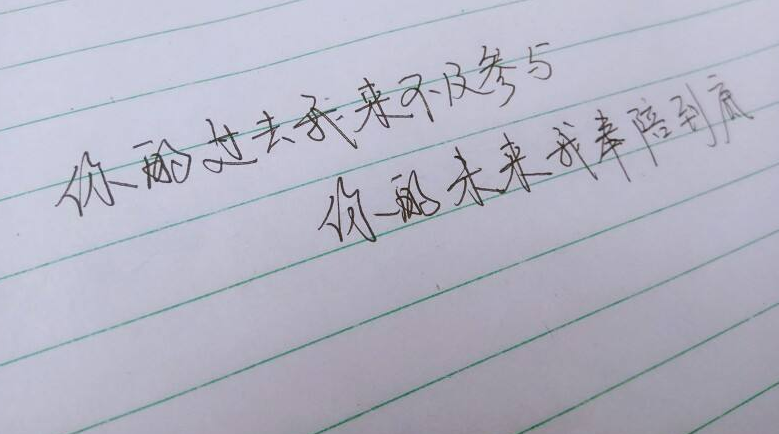 你的过去我来不及参与
你的未来我奉陪到底